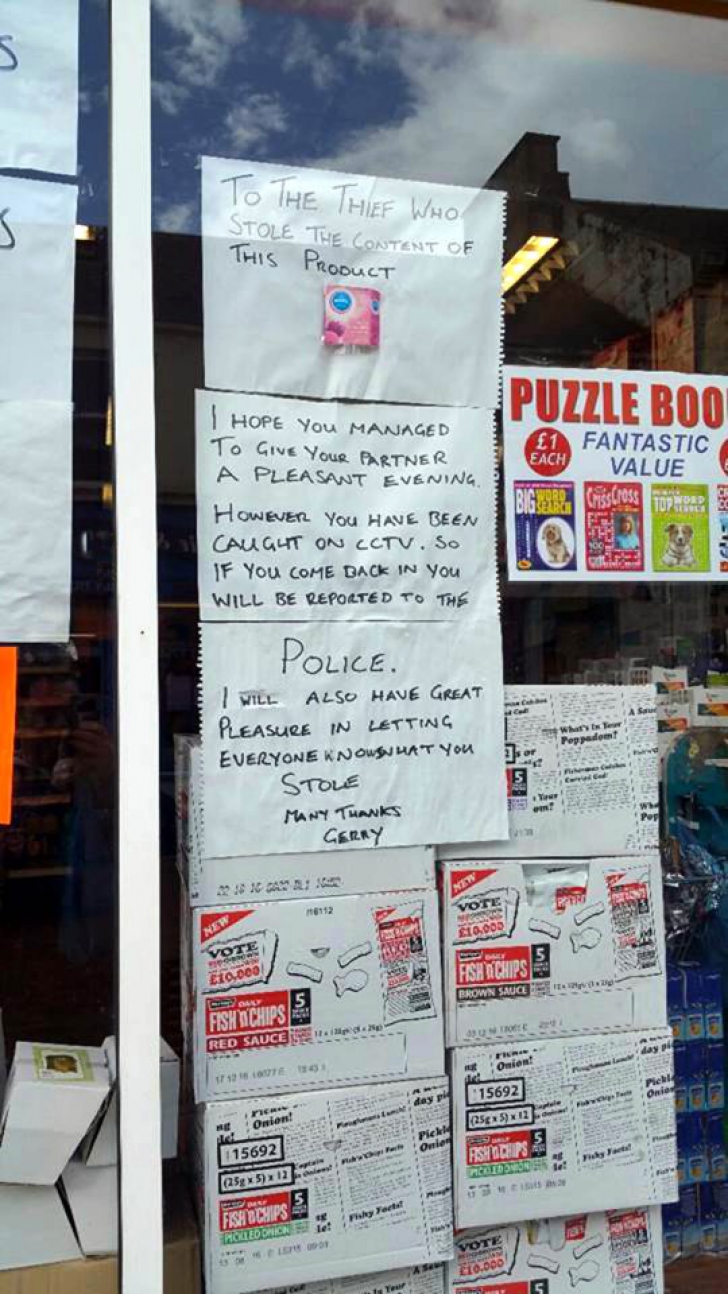 TO THE THIEF WHO
STOLE THE CONTENT OF
THIS PRODUCT
I HOPE YOU MANAGED
TO GIVE YOUR PARTNER
A PLEASANT EVENING.
HOWEVER YOU HAVE BEEN
CAUGHT ON CCTV. SO
IF YOU COME BACK IN YOU
WILL BE REPORTED TO THE
POLICE.
I WILL ALSO HAVE GREAT
PLEASURE IN LETTING
EVERYONE KNOW WHAT YOU
STOLE
MANY THANKS
GERRY
PUZZLE BOO
£1 EACH
FANTASTIC
VALUE
BIG WORD SEARCH
CrissCross
TOP WORD SEARCH
What's In Your
Poppadom?
5
NEW
116112
VOTE
£10,000
DAILY
FISH 'N' CHIPS
5
RED SAUCE
NEW
VOTE
£10,000
DAILY
FISH 'N' CHIPS
5
BROWN SAUCE
Onion!
Ploughmans Lunch!
15692
(25g x 5) x 12
DAILY
FISH 'N' CHIPS
5
PICKLED ONION
Fishy Facts!
Pickle
Onion!
15692
(25g x 5) x 12
DAILY
FISH 'N' CHIPS
5
PICKLED ONION
Fishy Facts!
VOTE
£10,000
5